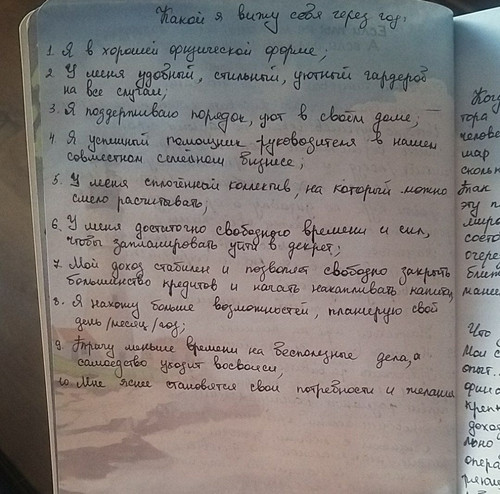 Какой я вижу себя через год:
1. Я в хорошей физической форме;
2. У меня удобный, стильный, уютный гардероб
на все случаи;
3. Я поддерживаю порядок, уют в своём доме;
4. Я успешный помощник руководителя в нашем
совместном семейном бизнесе;
5. У меня сплочённый коллектив, на который можно
смело расчитывать;
6. У меня достаточно свободного времени и сил,
чтобы запланировать уйти в декрет;
7. Мой доход стабилен и позволяет свободно закрыть
большинство кредитов и начать накапливать капитал
8. Я нахожу больше возможностей, планирую свой
день/месяц/год;
9. Трачу меньше времени на бесполезные дела, а
самоедство уходит восвояси;
10. Мне яснее становятся свои потребности и желания
Когд
тора
человек
мар
сколь
так
эту п
миро
состо
очере
ближ
мане
Что
Мои с
опыт.
физи
крепк
доход
льно
опера